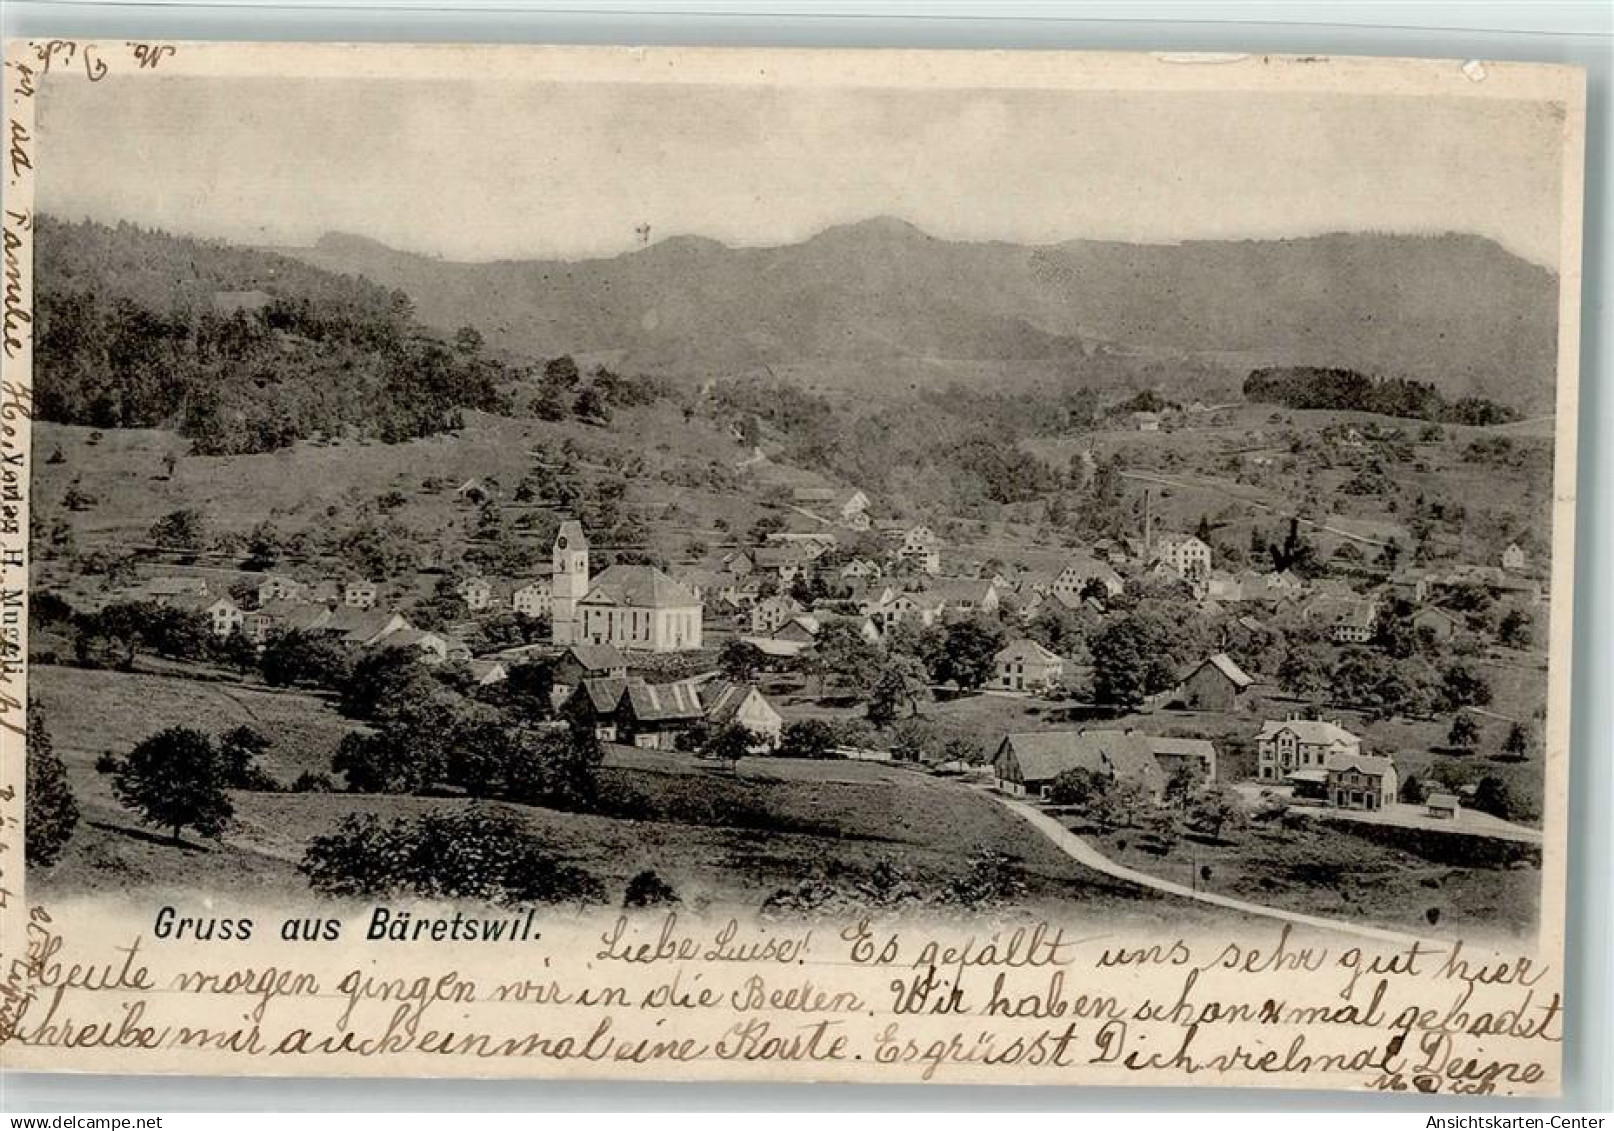 M. Dich.
Gruss aus Bäretswil.
Liebe Luise! Es gefällt uns sehr gut hier
Heute morgen gingen wir in die Beeren. Wir haben schon x mal gebadet
schreibe mir auch einmal eine Karte. Es grüsst Dich vielmal Deine
M. Dich.
u. ad. Familie
Verlag H.
Ansichtskarten-Center